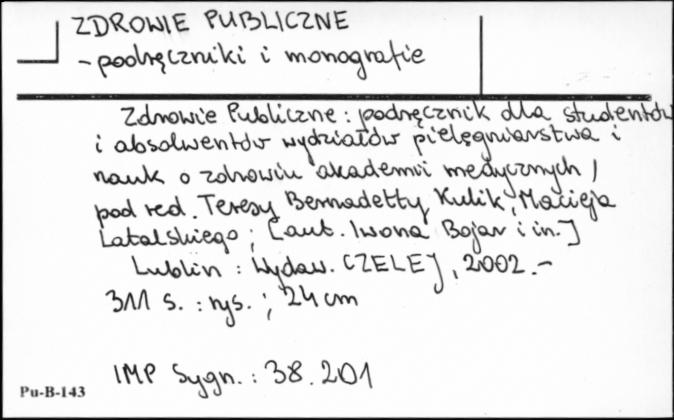 ZDROWIE PUBLICZNE
- podręczniki i monografie
Zdrowie Publiczne : podręcznik dla studentów
i absolwentów wydziałów pielęgniarstwa i
nauk o zdrowiu akademii medycznych /
pod red. Teresy Bernadetty Kulik, Macieja
Latalskiego ; [aut. Iwona Bojar i in.]
Lublin : Wydaw. CZELEJ, 2002. -
311 s. : rys. ; 24 cm
IMP Sygn. : 38.201
Pu-B-143